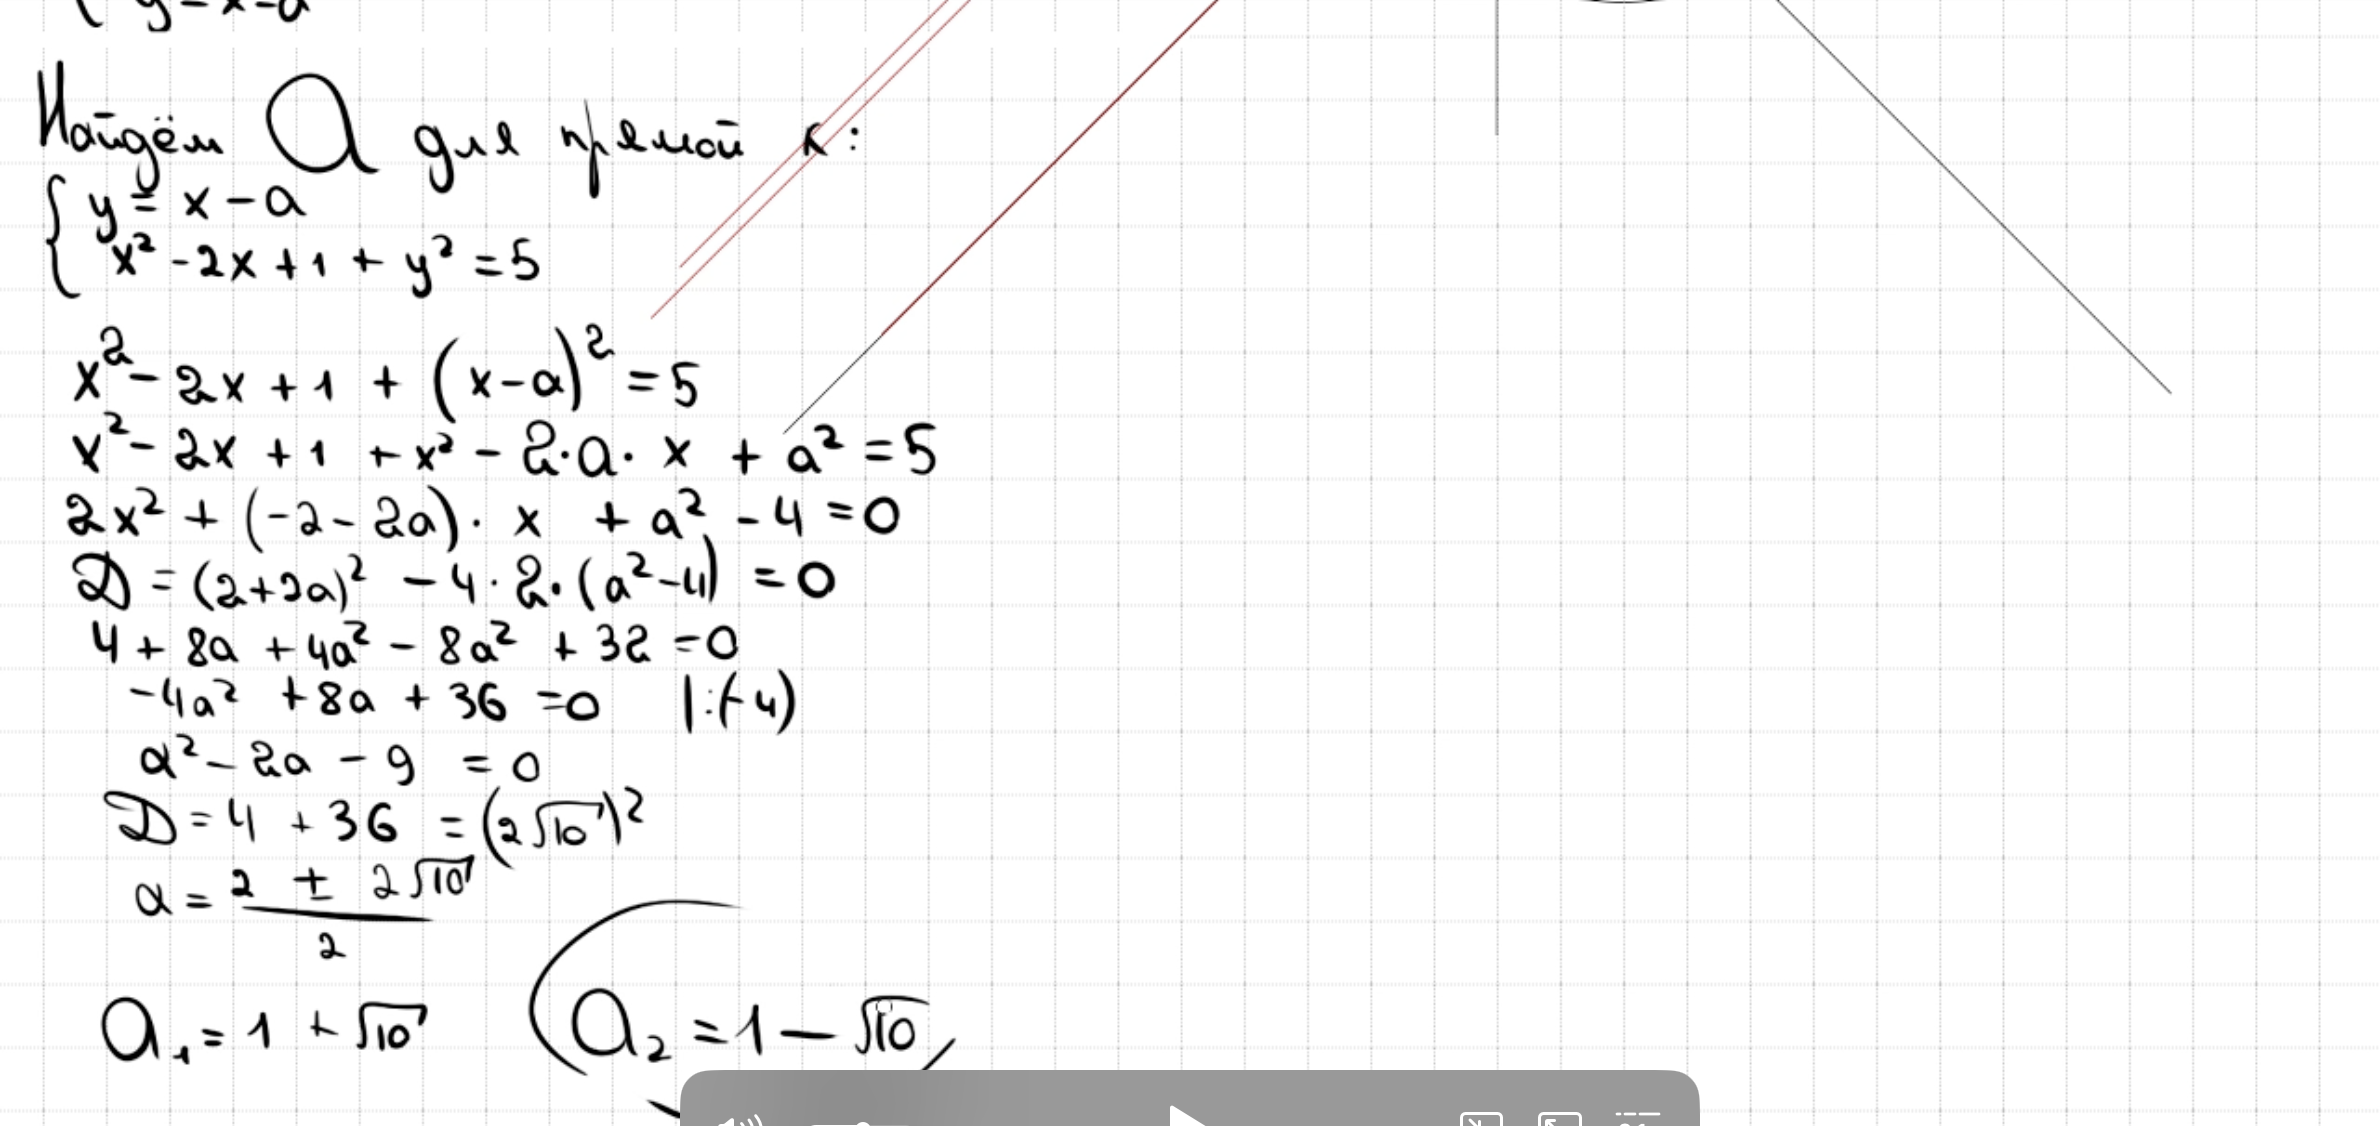 y = x - a
Найдём a для прямой k:
{ y = x - a
x² - 2x + 1 + y² = 5
x² - 2x + 1 + (x-a)² = 5
x² - 2x + 1 + x² - 2·a·x + a² = 5
2x² + (-2 - 2a)·x + a² - 4 = 0
D = (2+2a)² - 4·2·(a²-4) = 0
4 + 8a + 4a² - 8a² + 32 = 0
-4a² + 8a + 36 = 0 |:(-4)
a² - 2a - 9 = 0
D = 4 + 36 = (2√10)²
a = (2 ± 2√10)/2
a₁ = 1 + √10 a₂ = 1 - √10